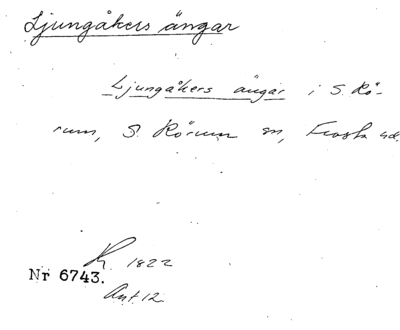 Ljungåkers ängar
Ljungåkers ängar i S. Rö-
rum, S. Rörum sn, Frosta hd.
R. 1822
Nr 6743.
Ant. 12